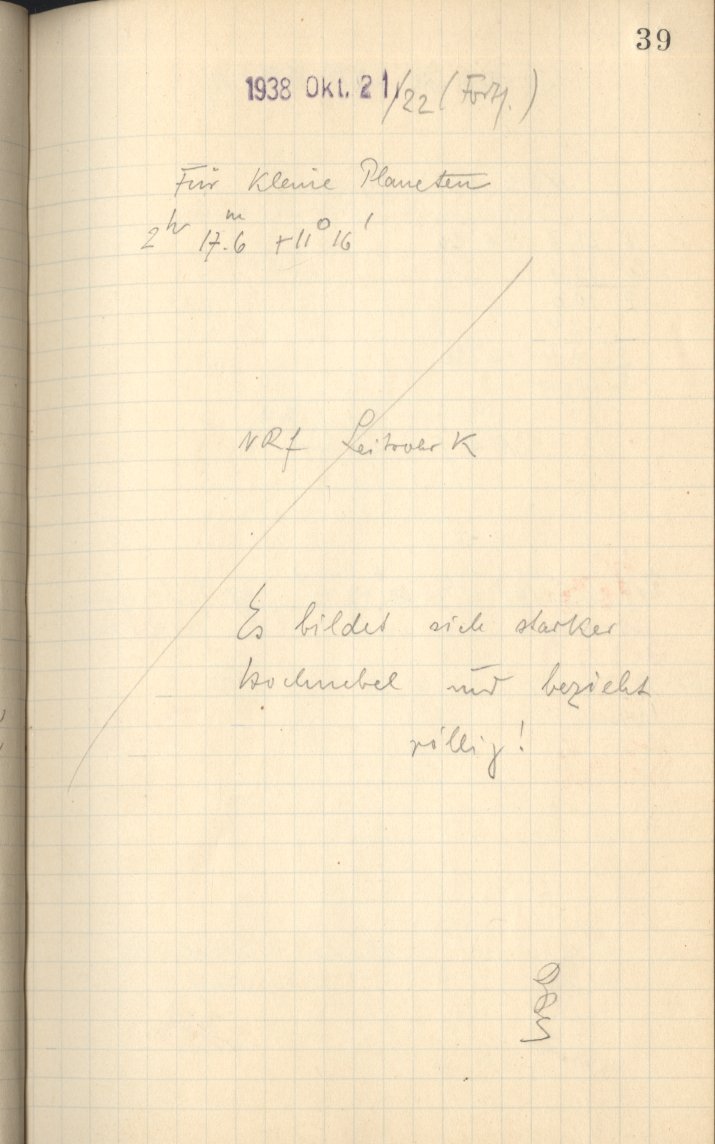 39
1938 Okt. 21/22 (Forts.)
Für Kleine Planeten
2ʰ 17.ᵐ6 +11°16'
Leitrohr K
Es bildet sich starker
Hochnebel und bezieht
völlig!